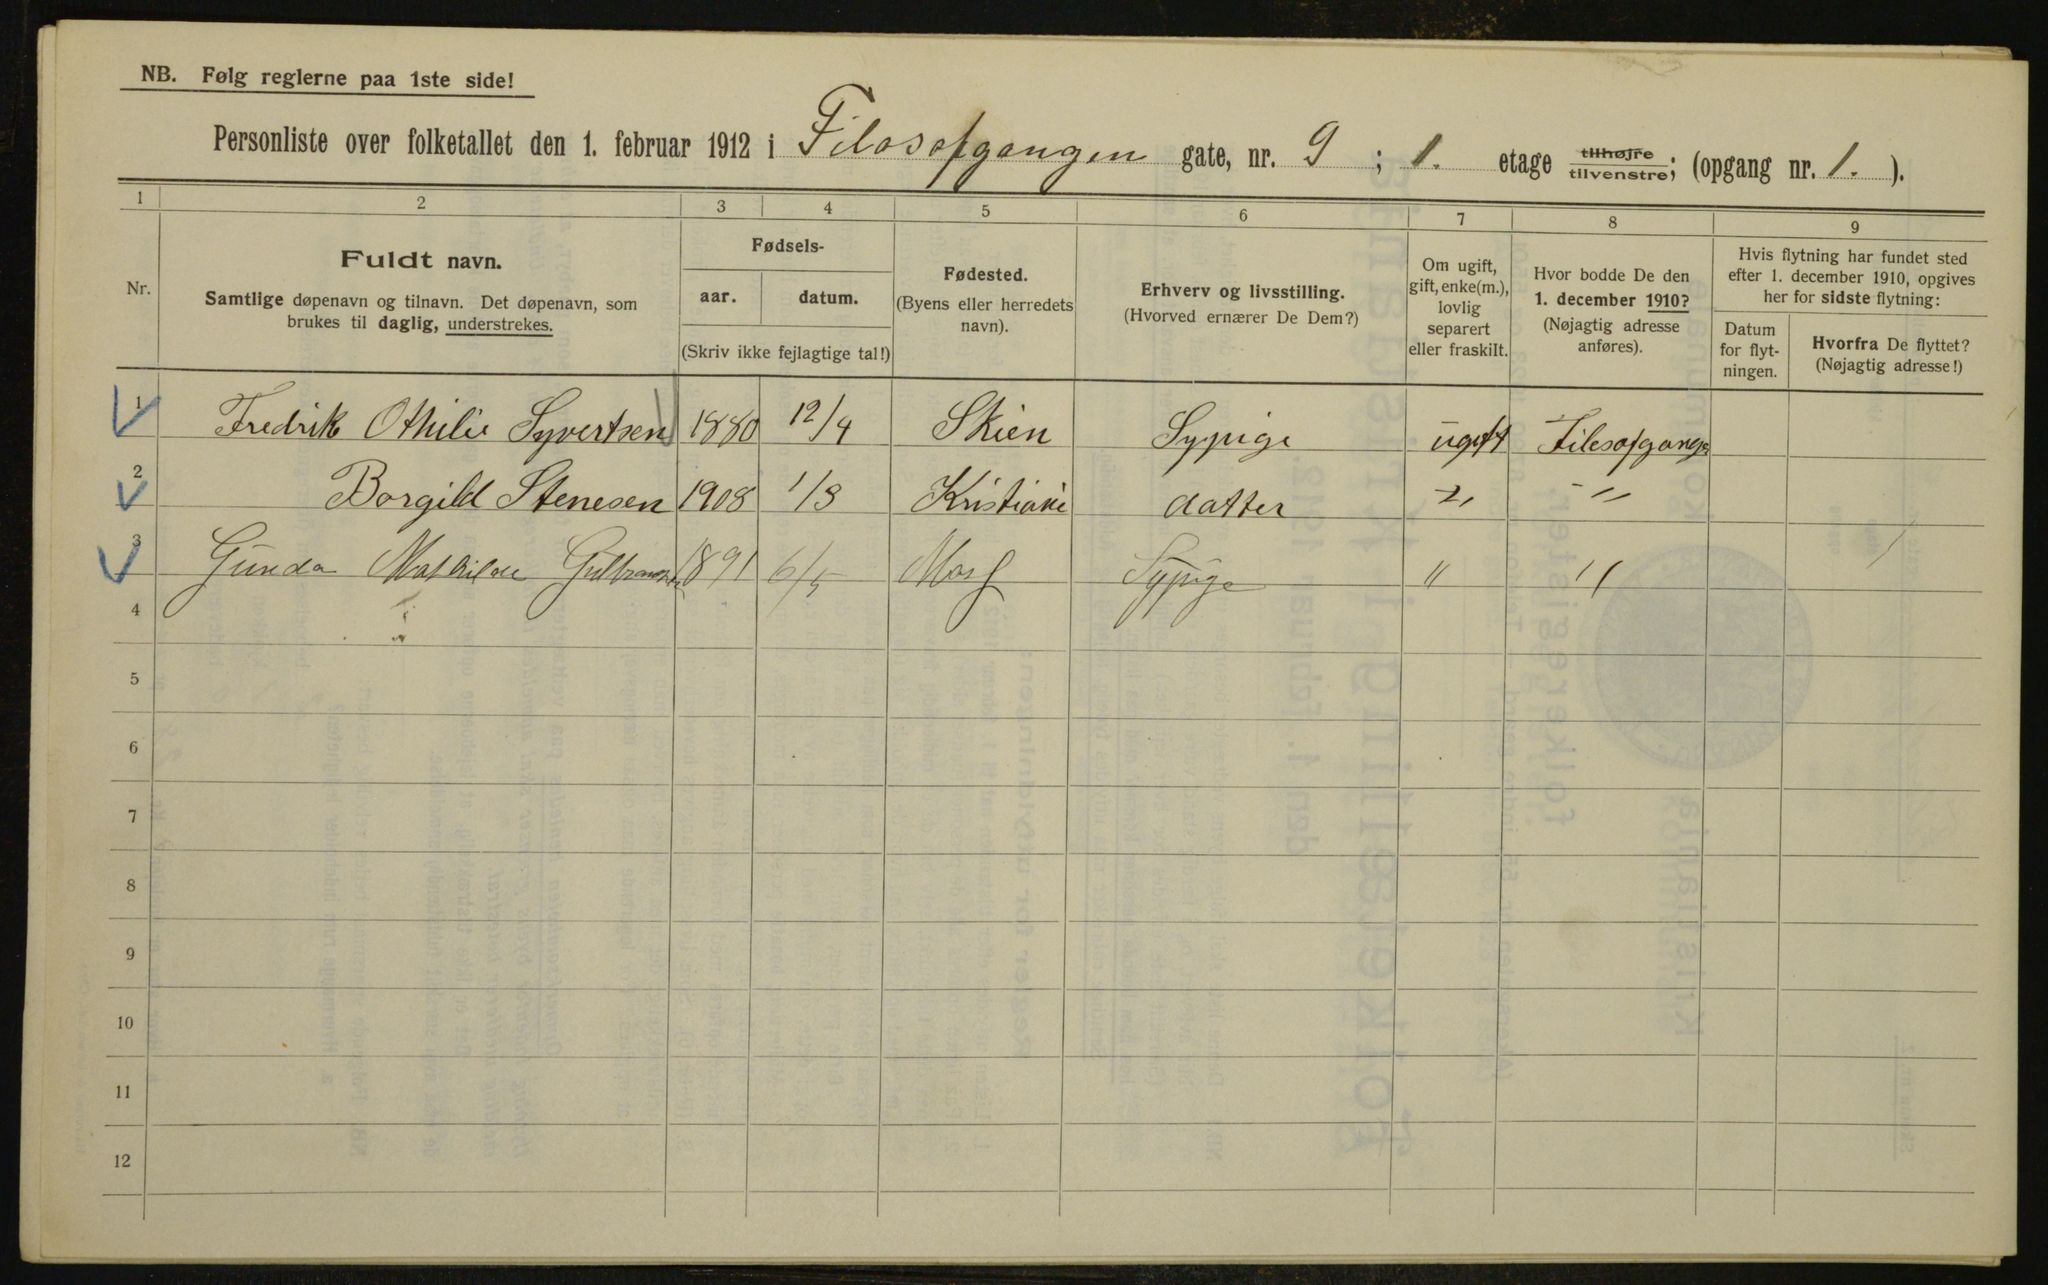 NB. Følg reglerne paa 1ste side!
Personliste over folketallet den 1. februar 1912 i Filosofgangen gate, nr. 9 ; 1. etage tilhøjre tilvenstre; (opgang nr. 1. ).
1 2 3 4 5 6 7 8 9
Nr.
Fuldt navn.
Samtlige døpenavn og tilnavn. Det døpenavn, som
brukes til daglig, understrekes.
Fødsels-
aar. datum.
(Skriv ikke fejlagtige tal!)
Fødested.
(Byens eller herredets
navn).
Erhverv og livsstilling.
(Hvorved ernærer De Dem?)
Om ugift,
gift, enke(m.),
lovlig
separert
eller fraskilt.
Hvor bodde De den
1. december 1910?
(Nøjagtig adresse
anføres).
Hvis flytning har fundet sted
efter 1. december 1910, opgives
her for sidste flytning:
Datum
for flyt-
ningen.
Hvorfra De flyttet?
(Nøjagtig adresse!)
1 Fredrik Othilie Syvertsen 1880 12/4 Skien Sypige ugift Filosofgangen
2 Borgild Stenesen 1908 1/3 Kristiania datter " "
3 Gunda Mathilde Gulbrandsen 1891 6/5 Moss Sypige " "
4
5
6
7
8
9
10
11
12